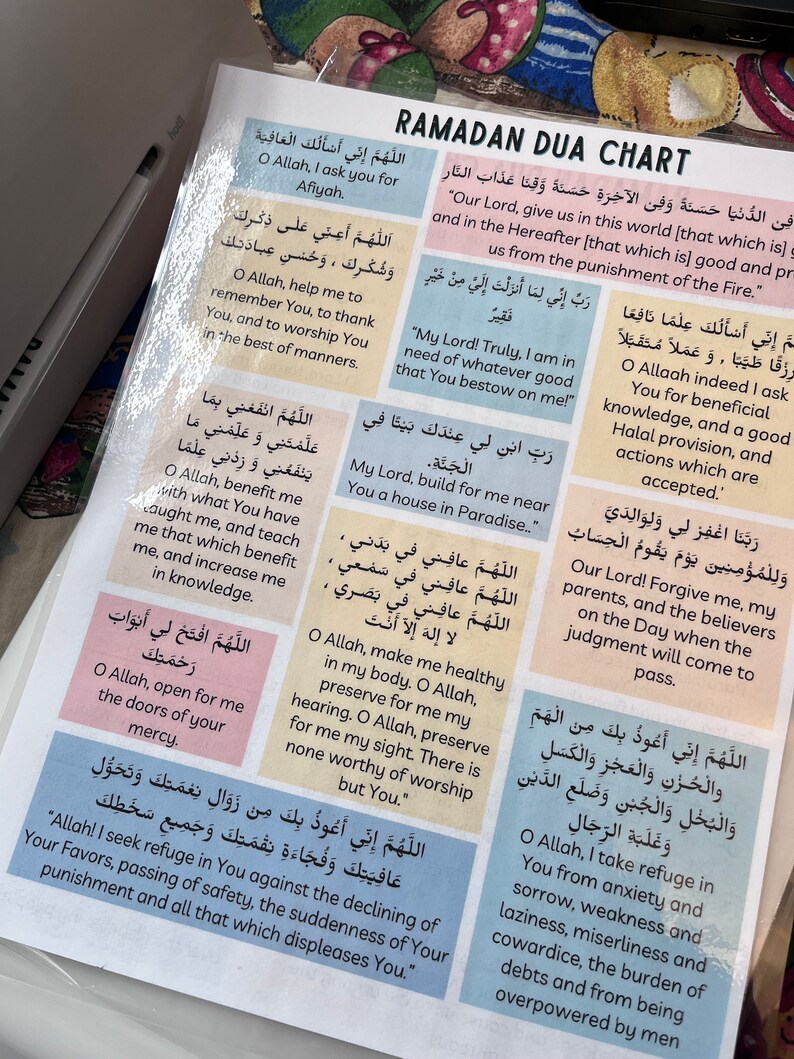 RAMADAN DUA CHART
اللَّهُمَّ إِنِّي أَسْأَلُكَ الْعَافِيَةَ
O Allah, I ask you for
Afiyah.
فِي الدُّنْيَا حَسَنَةً وَفِي الآخِرَةِ حَسَنَةً وَقِنَا عَذَابَ النَّارِ
“Our Lord, give us in this world [that which is]
and in the Hereafter [that which is] good and
us from the punishment of the Fire.”
اللَّهُمَّ أَعِنِّي عَلَى ذِكْرِكَ
وَشُكْرِكَ ، وَحُسْنِ عِبَادَتِكَ
O Allah, help me to
remember You, to thank
You, and to worship You
in the best of manners.
رَبِّ إِنِّي لِمَا أَنزَلْتَ إِلَيَّ مِنْ خَيْرٍ
فَقِيرٌ
“My Lord! Truly, I am in
need of whatever good
that You bestow on me!”
إِنِّي أَسْأَلُكَ عِلْمًا نَافِعًا
رِزْقًا طَيِّبًا , وَ عَمَلاً مُتَقَبَّلاً
O Allaah indeed I ask
You for beneficial
knowledge, and a good
Halal provision, and
actions which are
accepted.’
اللَّهُمَّ انْفَعْنِي بِمَا
عَلَّمْتَنِي وَ عَلِّمْنِي مَا
يَنْفَعُنِي وَ زِدْنِي عِلْمًا
O Allah, benefit me
with what You have
taught me, and teach
me that which benefit
me, and increase me
in knowledge.
رَبِّ ابْنِ لِي عِنْدَكَ بَيْتًا فِي
الْجَنَّةِ.
My Lord, build for me near
You a house in Paradise..”
رَبَّنَا اغْفِرْ لِي وَلِوَالِدَيَّ
وَلِلْمُؤْمِنِينَ يَوْمَ يَقُومُ الْحِسَابُ
Our Lord! Forgive me, my
parents, and the believers
on the Day when the
judgment will come to
pass.
اللَّهُمَّ عَافِنِي فِي بَدَنِي ،
اللَّهُمَّ عَافِنِي فِي سَمْعِي ،
اللَّهُمَّ عَافِنِي فِي بَصَرِي ،
لا إِلهَ إِلاّ أَنْتَ
O Allah, make me healthy
in my body. O Allah,
preserve for me my
hearing. O Allah, preserve
for me my sight. There is
none worthy of worship
but You."
اللَّهُمَّ افْتَحْ لِي أَبْوَابَ
رَحْمَتِكَ
O Allah, open for me
the doors of your
mercy.
اللَّهُمَّ إِنِّي أَعُوذُ بِكَ مِنَ الْهَمِّ
والْحُزْنِ وَالْعَجْزِ وَالْكَسَلِ
وَالْبُخْلِ وَالْجُبْنِ وَضَلَعِ الدَّيْنِ
وَغَلَبَةِ الرِّجَالِ
O Allah, I take refuge in
You from anxiety and
sorrow, weakness and
laziness, miserliness and
cowardice, the burden of
debts and from being
overpowered by men
اللَّهُمَّ إِنِّي أَعُوذُ بِكَ مِن زَوَالِ نِعْمَتِكَ وَتَحَوُّلِ
عَافِيَتِكَ وَفُجَاءَةِ نِقْمَتِكَ وَجَمِيعِ سَخَطِكَ
“Allah! I seek refuge in You against the declining of
Your Favors, passing of safety, the suddenness of Your
punishment and all that which displeases You.”